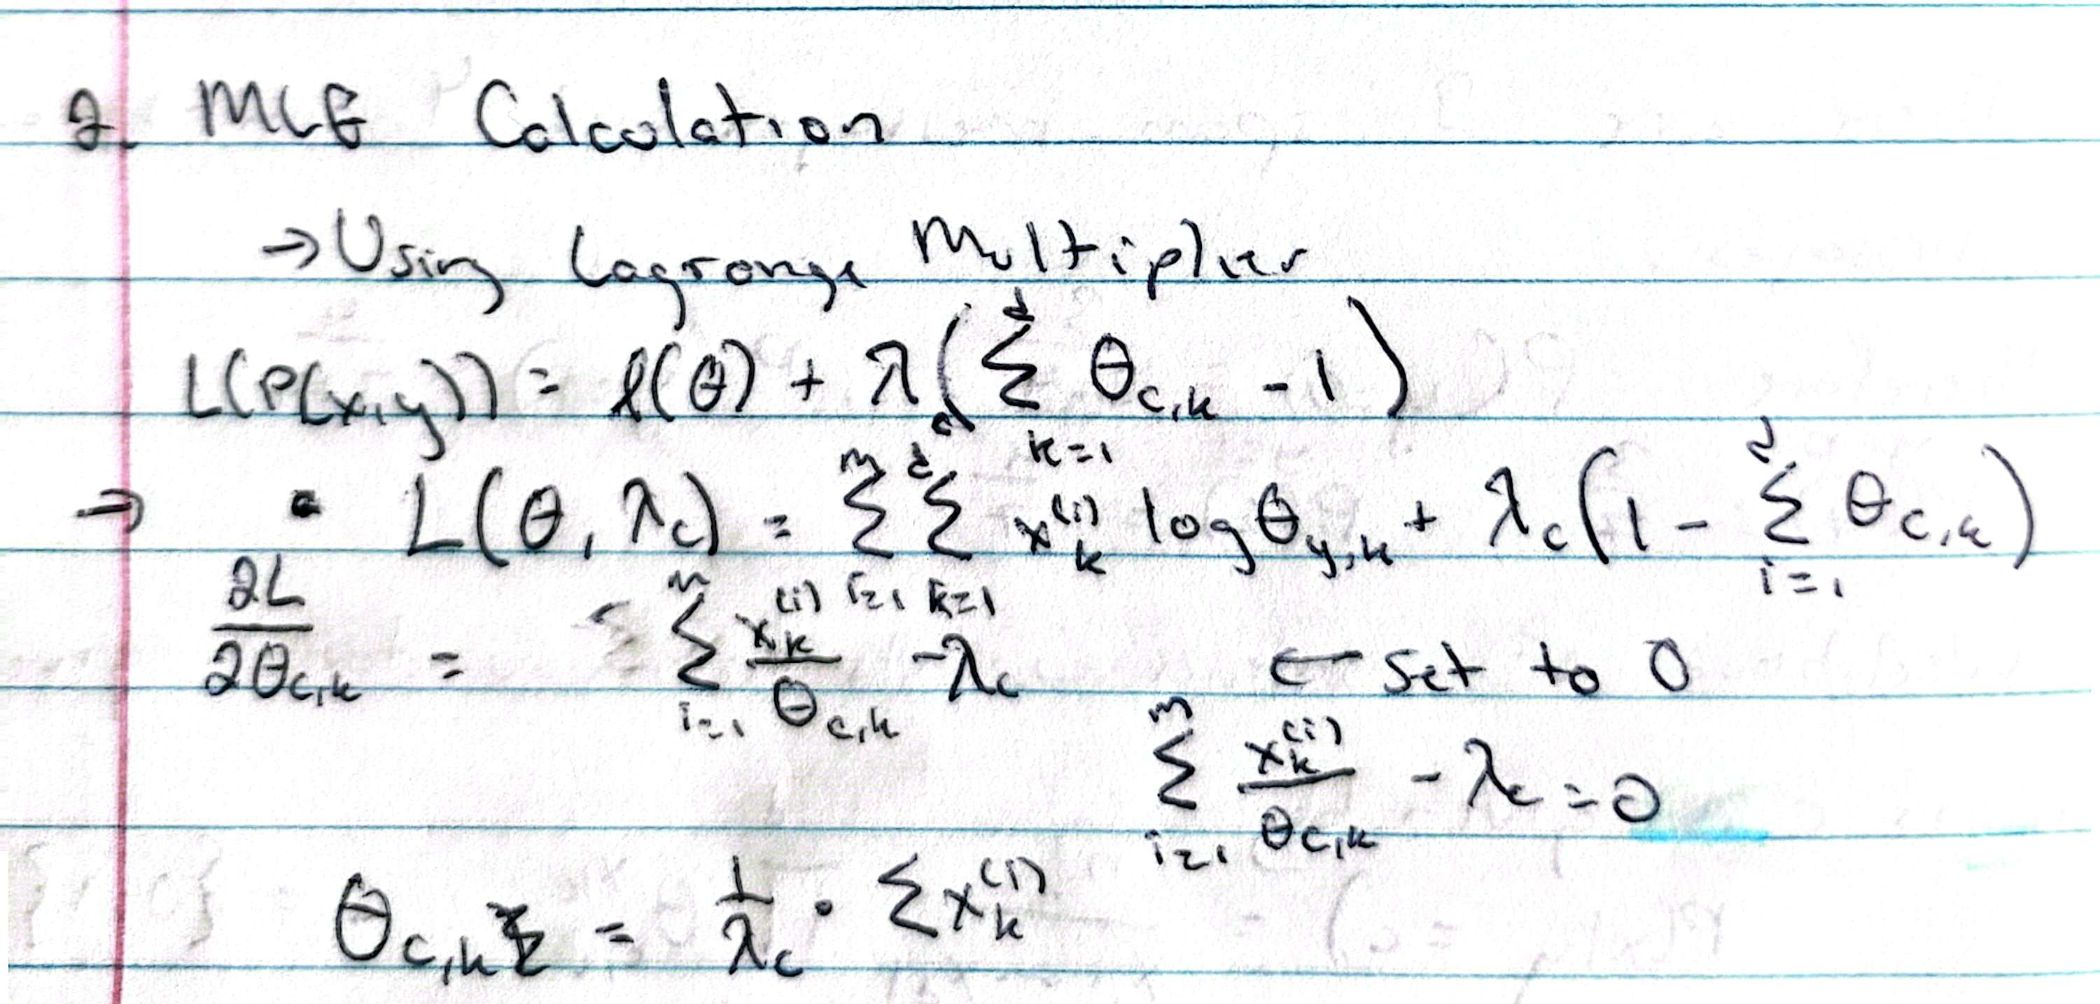 2. MLE Calculation
→ Using Lagrange Multiplier
L(P(x,y)) = ℓ(θ) + λ(∑_{k=1}^{d} θ_{c,k} - 1)
→ • L(θ, λ_c) = ∑_{i=1}^{m} ∑_{k=1}^{d} x_k^{(i)} log θ_{y,k} + λ_c(1 - ∑_{i=1}^{d} θ_{c,k})
∂L/∂θ_{c,k} = ∑_{i=1}^{m} x_k^{(i)}/θ_{c,k} - λ_c ← set to 0
∑_{i=1}^{m} x_k^{(i)}/θ_{c,k} - λ_c = 0
θ_{c,k} = 1/λ_c · ∑ x_k^{(i)}